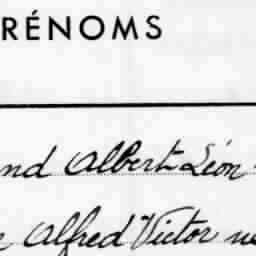 RÉNOMS
nd Albert Léon
Alfred Victor